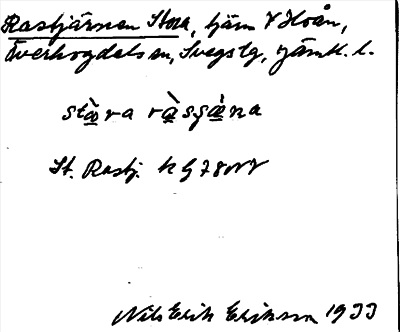 Rastjärnen Stora, tjärn V Hoån,
Överhogdals sn, Svegs tg, Jämtl. l.
stæ̀ra ràsɟæ̀na
St. Rastj. k G 78 NV
Nils Erik Eriksson 1933